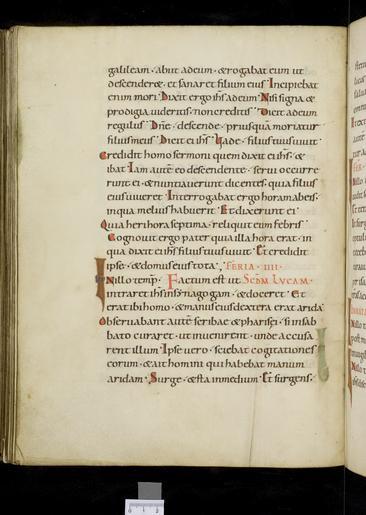 galileam · abiit adeum · & rogabat eum ut
descender& · et sanar& filium eius · Incipiebat
enim mori · Dixit ergo ihs adeum · Nisi signa &
prodigia videritis · non creditis · Dicit adeum
regulus · Dne · descende · priusquā moriatur
filius meus · Dicit ei ihs · Vade · filius tuus vivit ·
Credidit homo sermoni quem dixit ei ihs · &
ibat · Iam autē eo descendente · servi occurre
runt ei · & nuntiaverunt dicentes · quia filius
eius viveret · Interrogabat ergo horam ab eis ·
in qua melius habuerit · Et dixerunt ei ·
Quia heri hora septima · reliquit eum febris ·
Cognovit ergo pater quia illa hora erat · in
qua dixit ei ihs filius tuus vivit · Et credidit
ipse · & domus eius tota · FERIA · IIII ·
In illo temp̄ · Factum est ut Scdm Lucam ·
intraret ihs in sinagogam · & doceret · Et
erat ibi homo · & manus eius dextera erat arida ·
Observabant autē scribae & pharisei · si in sab
bato curaret · ut invenirent · unde accusa
rent illum · Ipse vero · sciebat cogitationes
eorum · & ait homini qui habebat manum
aridam · Surge · & sta in medium · Et surgens ·